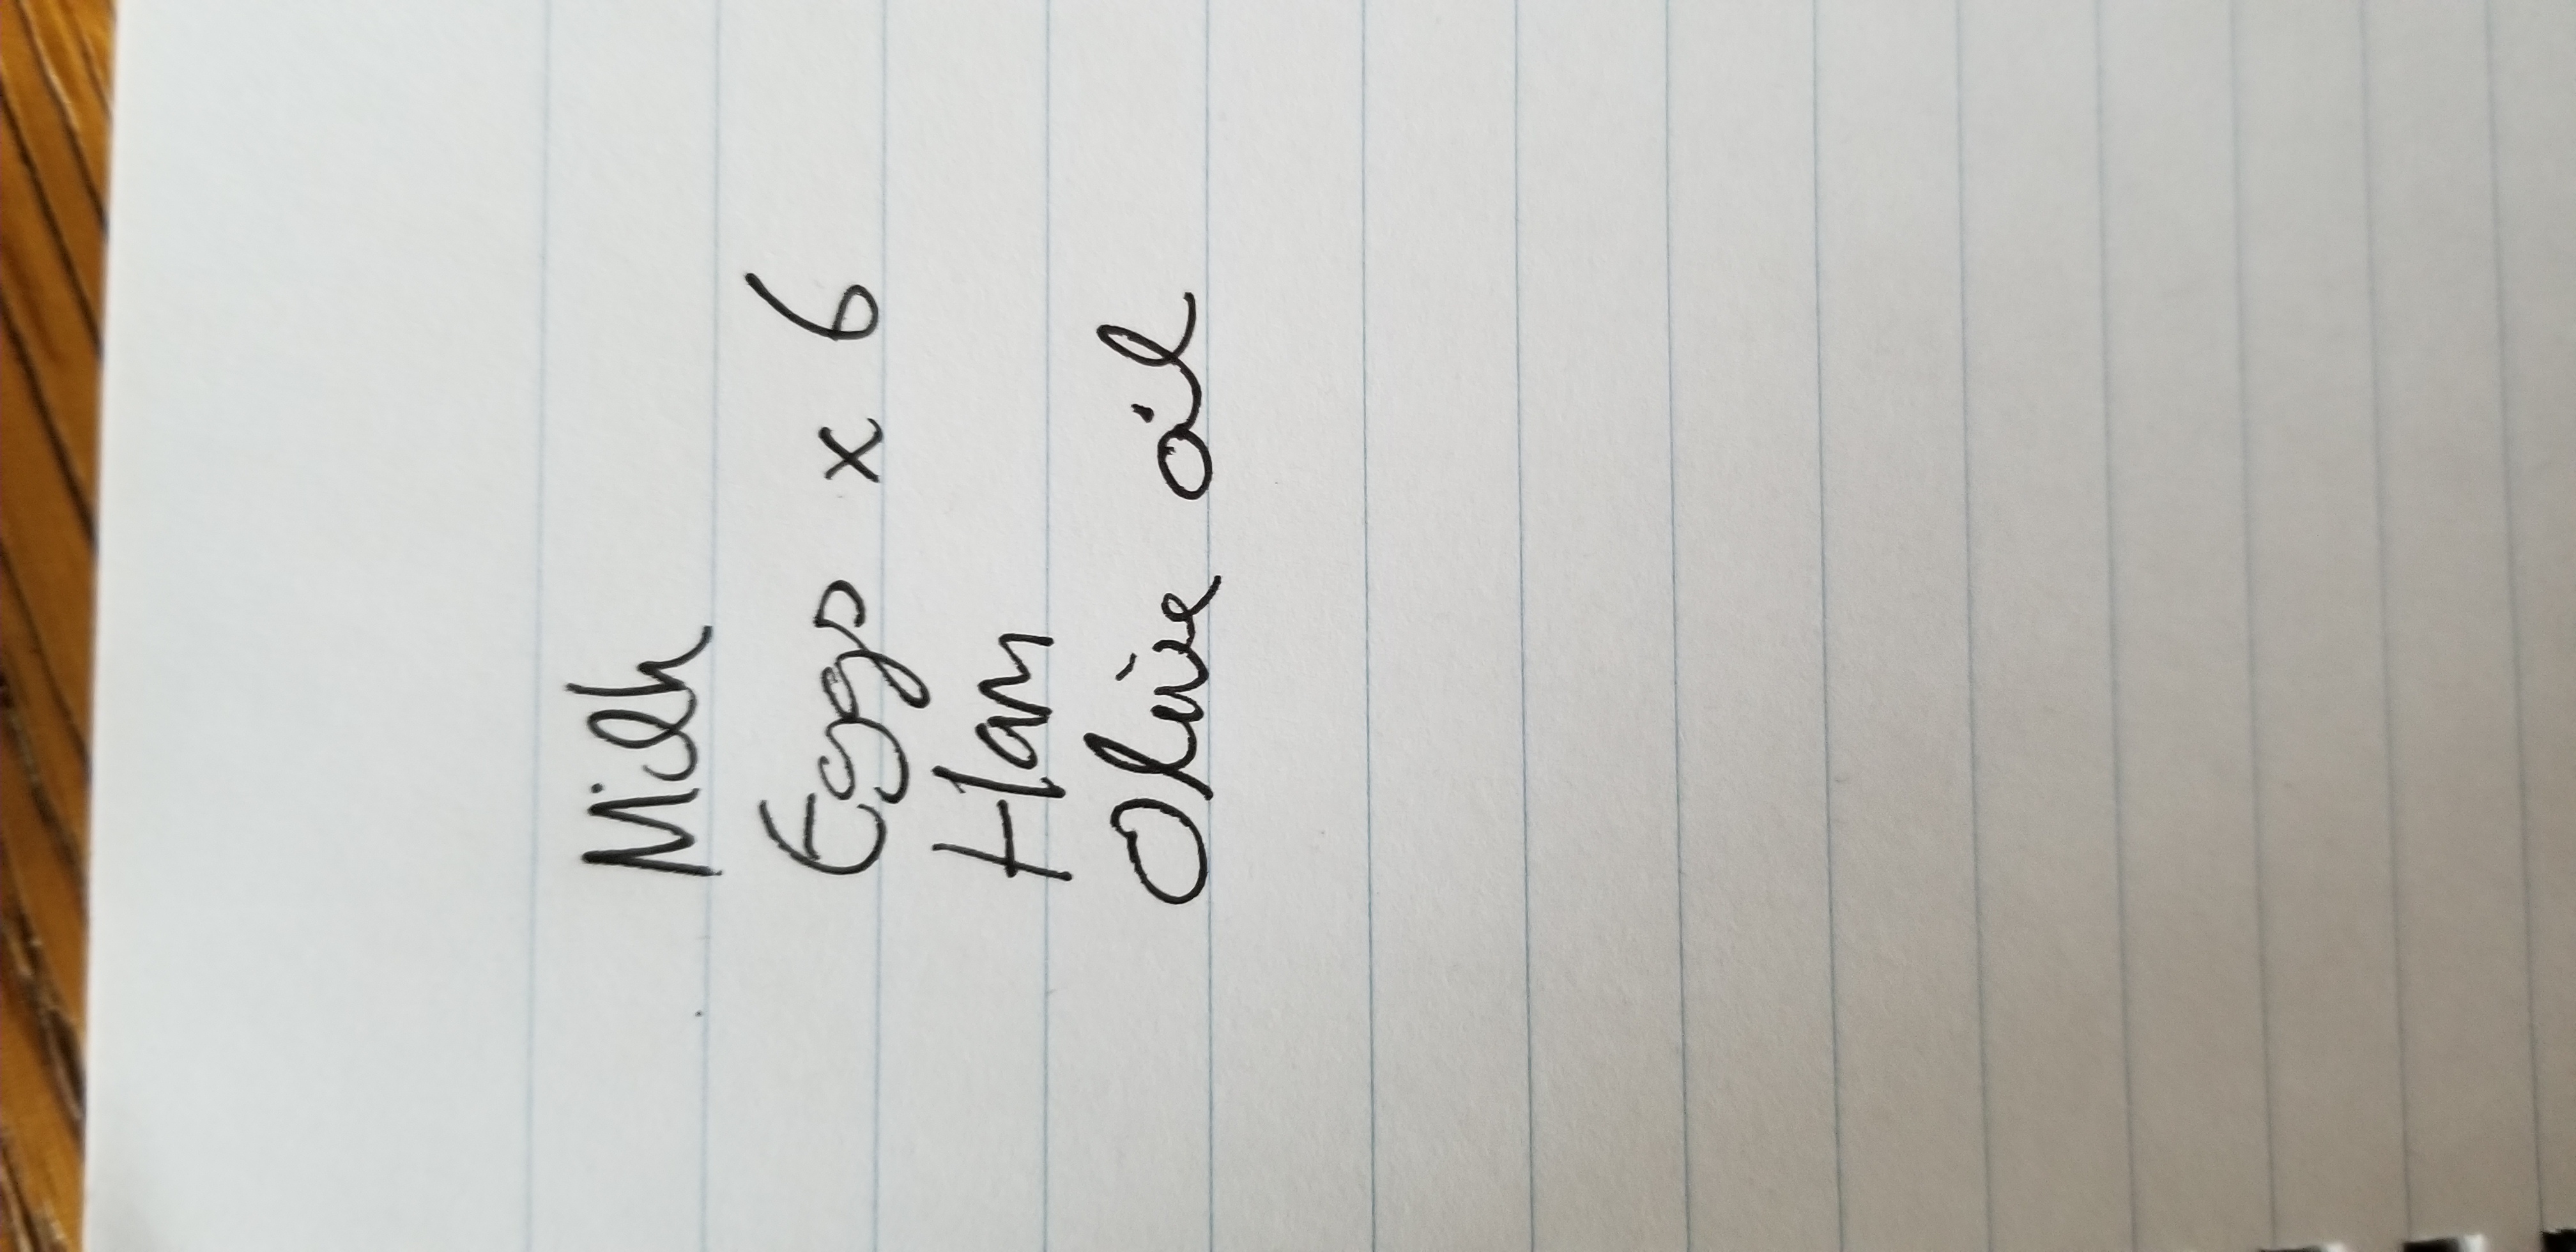 Milk
Eggs x 6
Ham
Olive oil